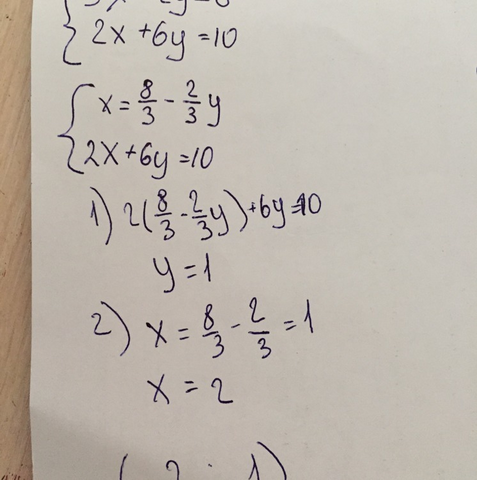 2x + 6y = 10
x = 8/3 - 2/3 y
2x + 6y = 10
1) 2(8/3 - 2/3 y) + 6y = 10
y = 1
2) x = 8/3 - 2/3 = 1
x = 2
(2 ; 1)